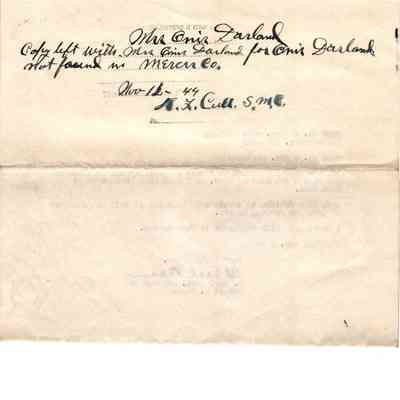 Mrs Onis Darland
Copy left with Mrs Onis Darland for Onis Darland
not found in Mercer Co.
Nov 16 - 44
Cull. S.M.C.